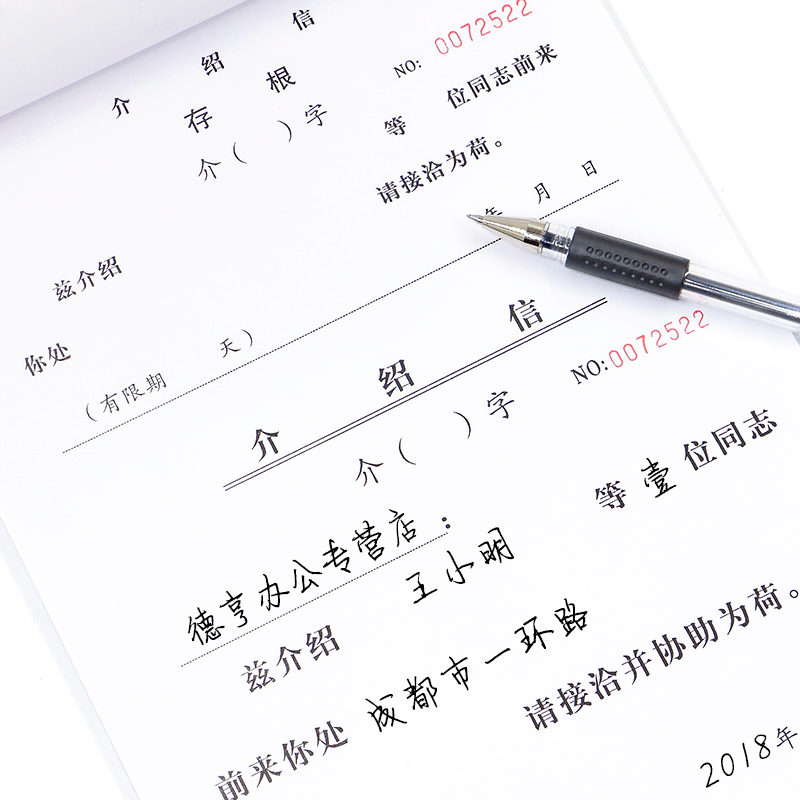 介 绍 信
存 根
NO: 0072522
介（ ）字
兹介绍 等 位同志前来
你处 请接洽为荷。
年 月 日
（有限期 天）
介 绍 信
介（ ）字 NO:0072522
德亨办公专营店：
兹介绍 王小明 等壹位同志
前来你处 成都市一环路
请接洽并协助为荷。
2018年